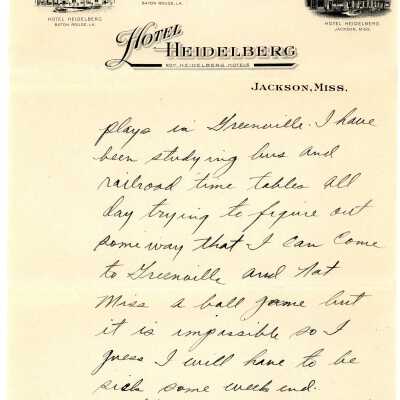 BATON ROUGE, LA.
HOTEL HEIDELBERG
BATON ROUGE, LA.
HOTEL HEIDELBERG
JACKSON, MISS.
HOTEL
HEIDELBERG
ROY HEIDELBERG HOTELS
JACKSON, MISS.
plays in Greenville. I have
been studying bus and
railroad time tables all
day trying to figure out
some way that I can come
to Greenville and not
miss a ball game but
it is impossible so I
guess I will have to be
sick some week end.